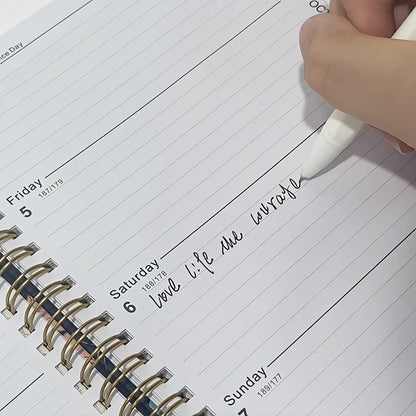 ice Day
Friday
5 187/179
Saturday
6 188/178
love life the courage
Sunday
7 189/177